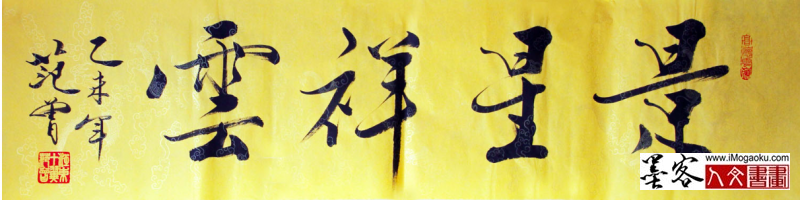 景星祥雲
乙未年
范曾
墨客
www.iMogaoku.com
人文書畫